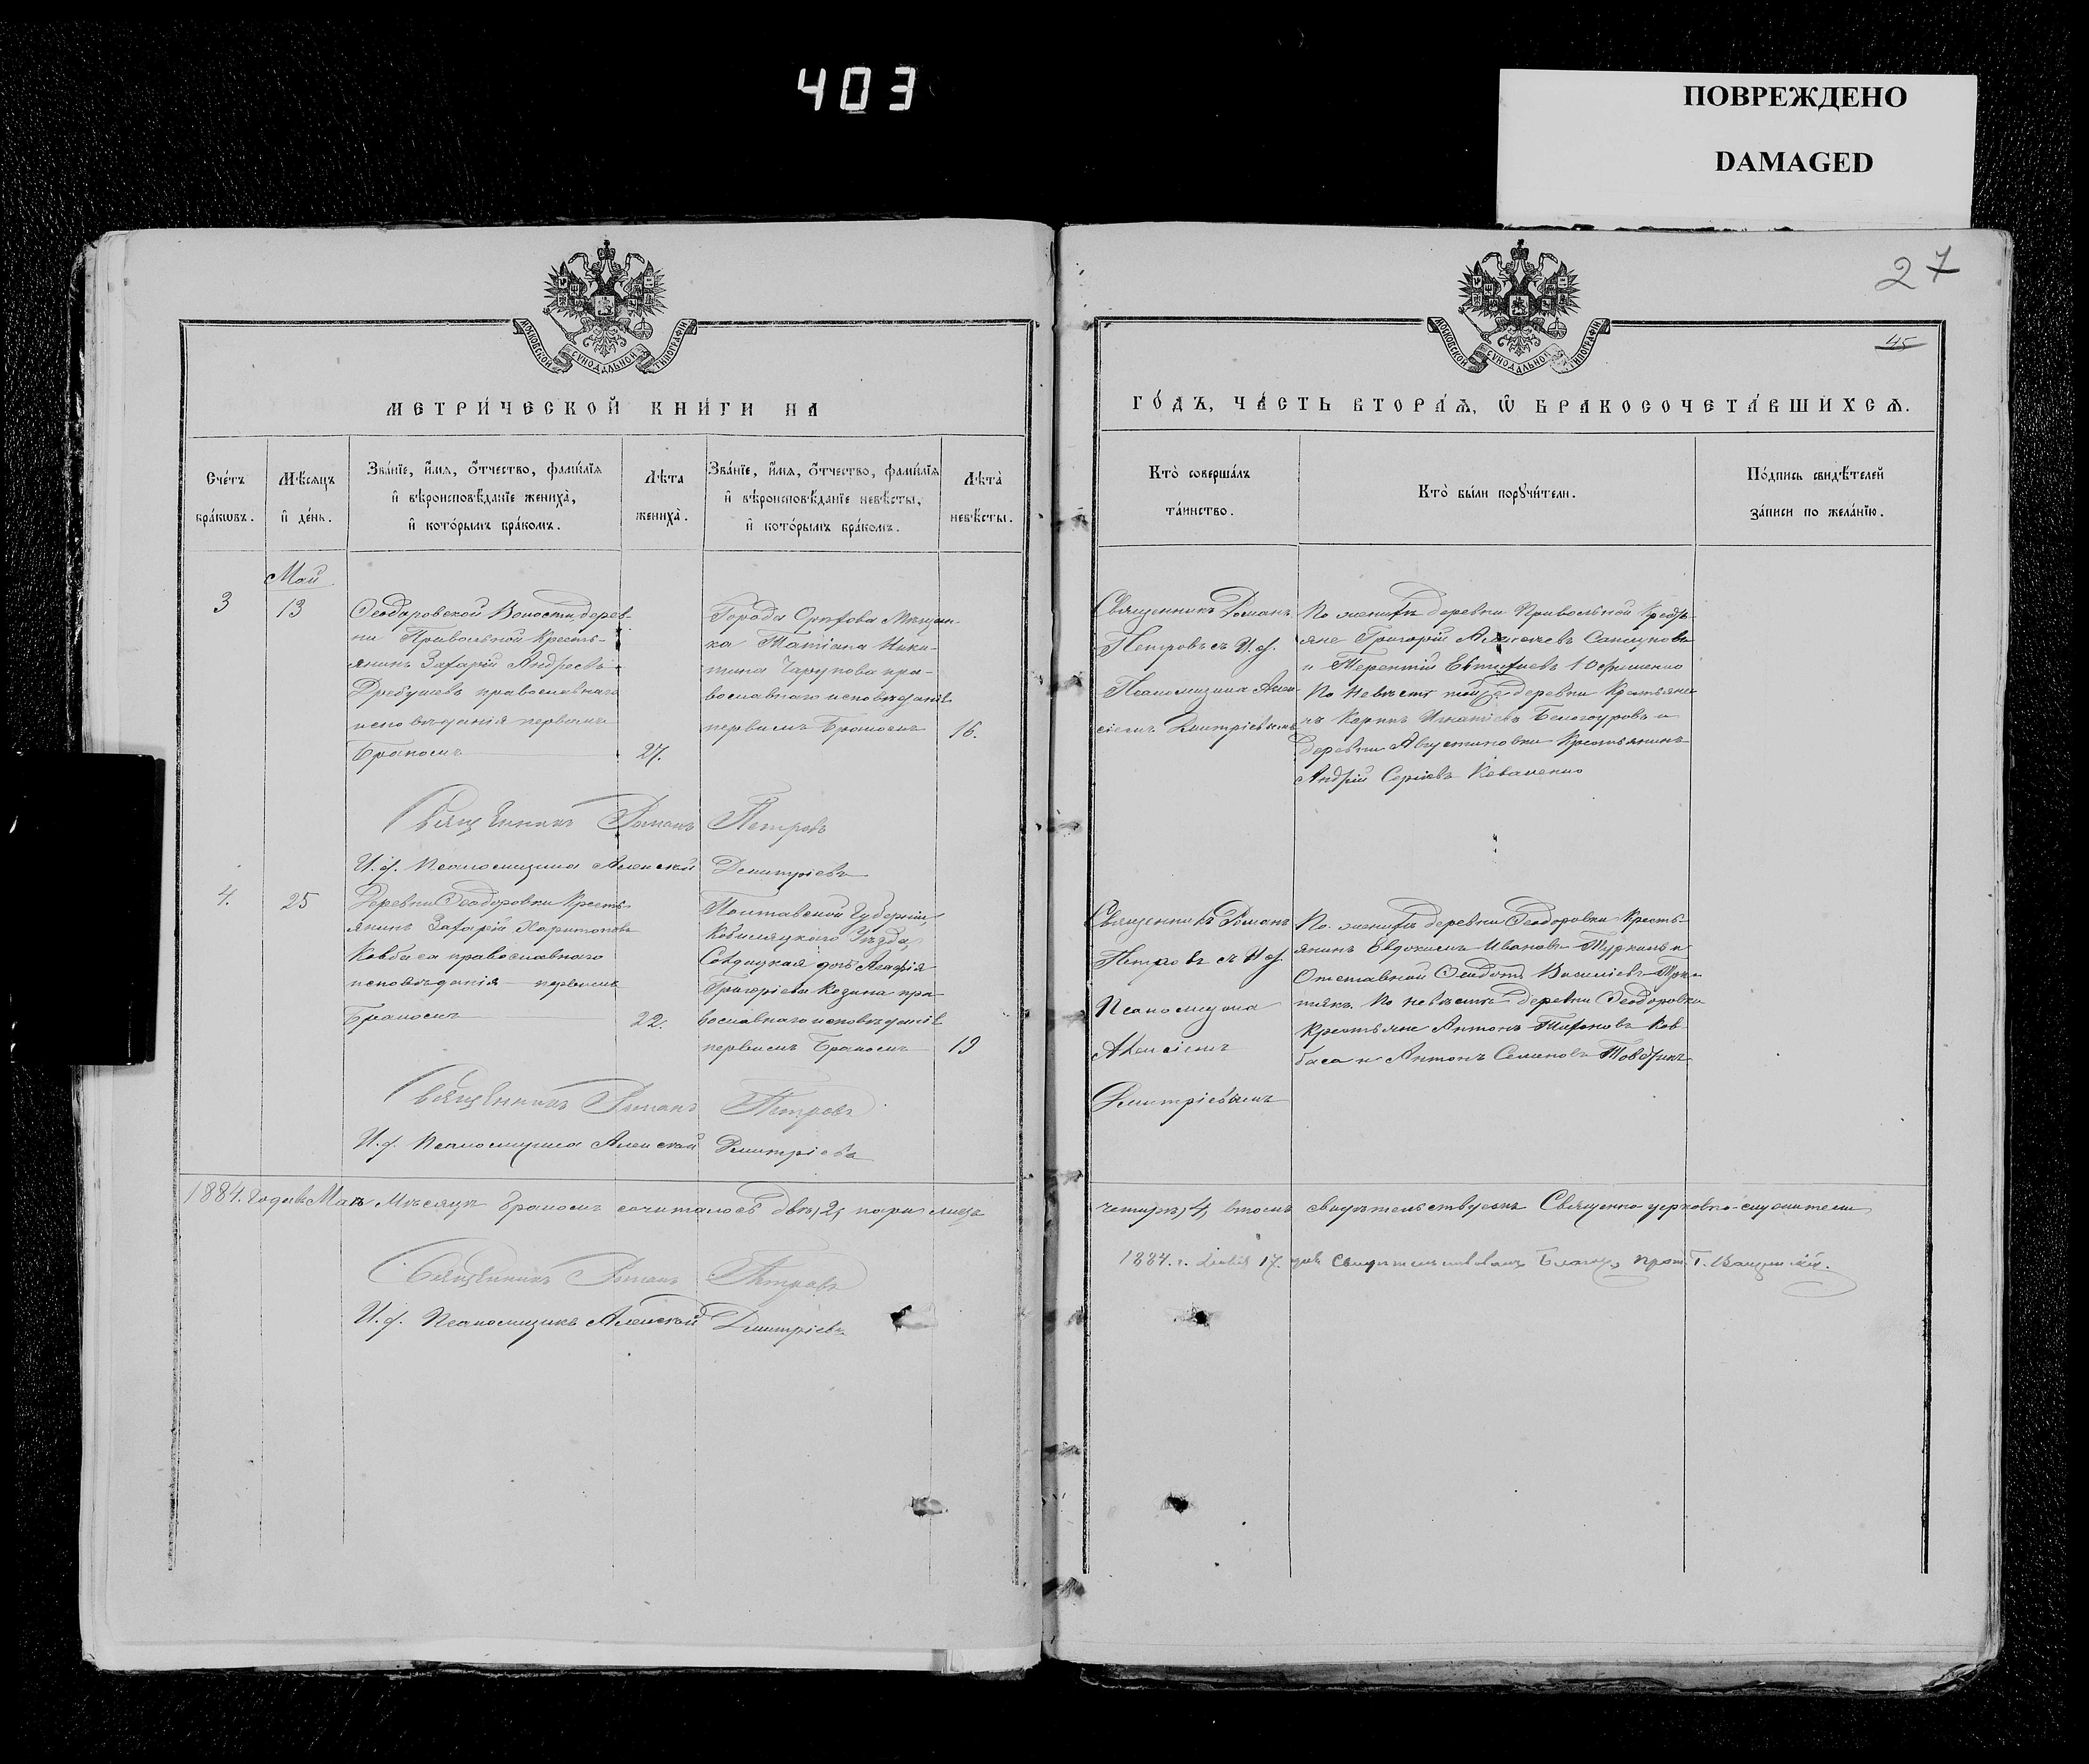 403
ПОВРЕЖДЕНО
DAMAGED
27
45
МОСКОВСКОЙ СУНОДАЛЬНОЙ ТИПОГРАФІИ
МОСКОВСКОЙ СУНОДАЛЬНОЙ ТИПОГРАФІИ
МЕТРИ́ЧЕСКОЙ КНИ́ГИ НА
ГО́ДЪ, ЧА́СТЬ ВТОРА́Ѧ, Ѿ БРАКОСОЧЕТА́ВШИХСѦ.
Сче́тъ
бра́кωвъ.
Мѣ́сяцъ
и҆ де́нь.
Зва́нїе, и҆́мя, о҆́тчество, фами́лїя
и҆ вѣроисповѣ́данїе жениха̀,
и҆ кото́рымъ бра́комъ.
Лѣ́та
жениха̀.
Зва́нїе, и҆́мя, о҆́тчество, фами́лїя
и҆ вѣроисповѣ́данїе невѣ́сты,
и҆ кото́рымъ бра́комъ.
Лѣ́та
невѣ́сты.
Кто̀ соверша́лъ
та́инство.
Кто̀ бы́ли порꙋчи́тели.
По́дпись свидѣ́телей
за́писи по жела́нїю.
Май
3
13
Ѳеодоровской Волости дерев-
ни Привольной Кресть-
янинъ Захарій Андреевъ
православнаго
исповѣданія первымъ
бракомъ
24.
Города Орѣхова Мѣщан-
ка Татіана Ники-
тина пра-
вославнаго исповѣданія
первымъ бракомъ
16.
Священникъ Романъ
Петровъ съ И. д.
Псаломщика Алек-
сіемъ Димитріевымъ
По женихѣ деревни Привольной Кресть-
яне Григорій Алексѣевъ
и Терентій Евтихіевъ
По невѣстѣ той же деревни Крестьяни-
нъ Карпъ Игнатіевъ Белогуровъ и
деревни Августиновки Крестьянинъ
Андрій Сергіевъ Коваленко
Священникъ Романъ Петровъ
И. д. Псаломщика Алексѣй Димитріевъ
4.
25
Деревни Ѳеодоровки Кресть-
янинъ Захарій Харитоновъ
Ковбаса православнаго
исповѣданія первымъ
бракомъ
22.
Полтавской Губерніи,
Кобиляцкаго Уѣзда,
дочь Агафія
Григоріева Козина пра-
вославнаго исповѣданія
первымъ бракомъ
19
Священникъ Романъ
Петровъ съ И. д.
Псаломщика
Алексіемъ
Димитріевымъ
По женихѣ деревни Ѳеодоровки Кресть-
янинъ Евдокимъ Ивановъ и
Отставной Ѳеодотъ Василіевъ
По невѣстѣ деревни Ѳеодоровки
Крестьяне Антонъ Тихоновъ Ков-
баса и Антонъ Семеновъ
Священникъ Романъ Петровъ
И. д. Псаломщика Алексѣй Димитріевъ
1884. года въ Маѣ Мѣсяцѣ бракомъ сочиталось двѣ, 2, пары лицъ
четыре, 4, въ томъ свидѣтельствуемъ Священно церковно-служители
Священникъ Романъ Петровъ
1884. г. 17. дня Благоч. Прот. Г.
И. д. Псаломщика Алексѣй Димитріевъ